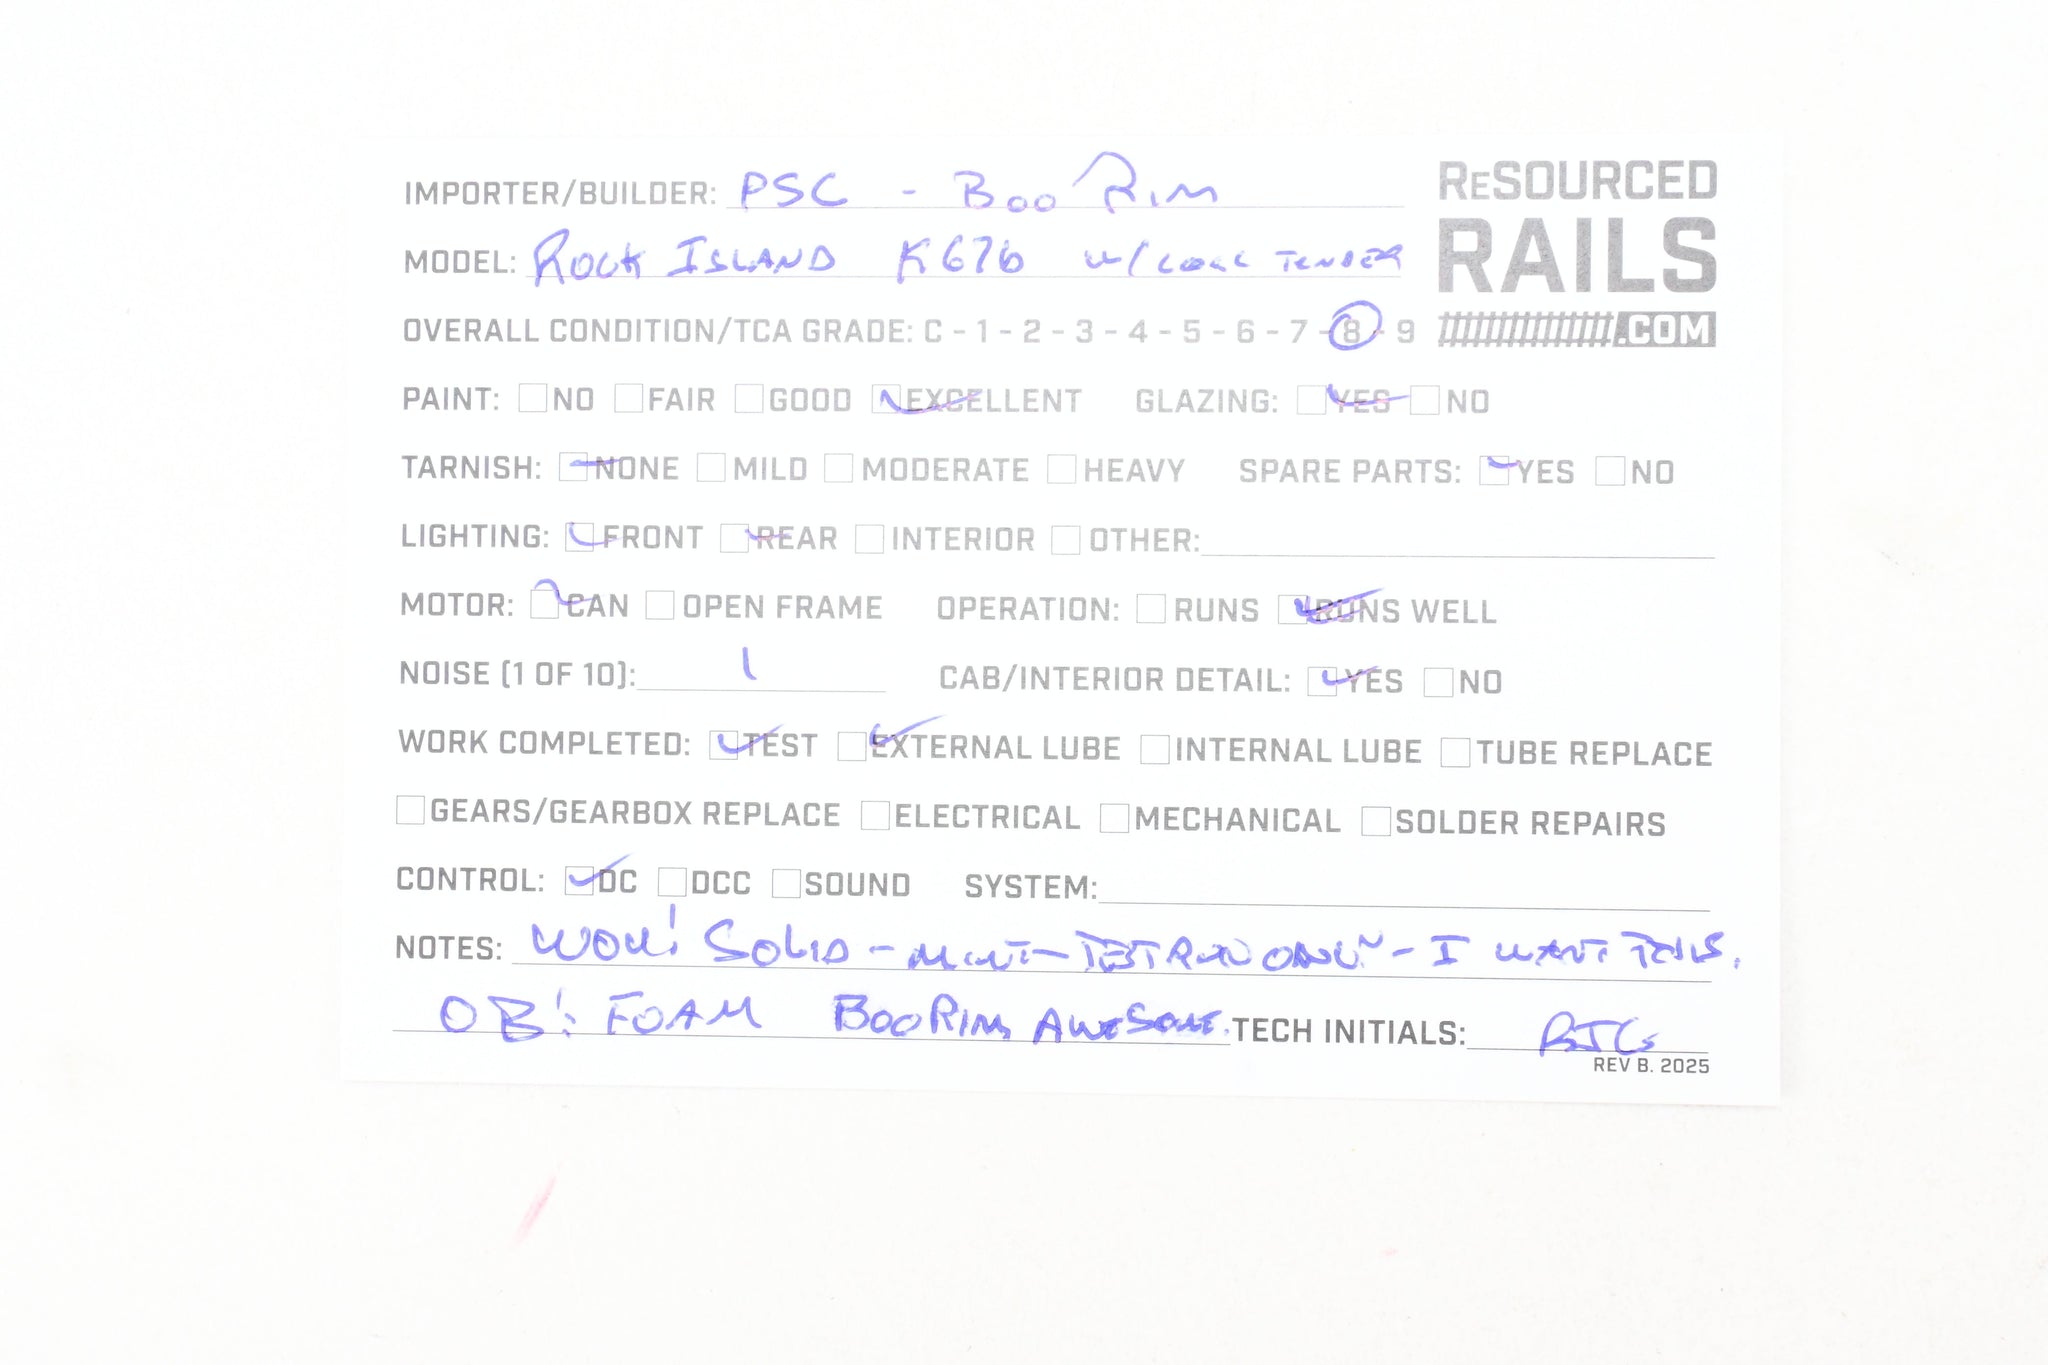 IMPORTER/BUILDER: PSC - Boo Rim
RESOURCED
RAILS
.COM
MODEL: ROCK ISLAND K67b w/COAL TENDER
OVERALL CONDITION/TCA GRADE: C - 1 - 2 - 3 - 4 - 5 - 6 - 7 - 8 - 9
PAINT: NO FAIR GOOD EXCELLENT GLAZING: YES NO
TARNISH: NONE MILD MODERATE HEAVY SPARE PARTS: YES NO
LIGHTING: FRONT REAR INTERIOR OTHER:
MOTOR: CAN OPEN FRAME OPERATION: RUNS RUNS WELL
NOISE (1 OF 10): 1 CAB/INTERIOR DETAIL: YES NO
WORK COMPLETED: TEST EXTERNAL LUBE INTERNAL LUBE TUBE REPLACE
GEARS/GEARBOX REPLACE ELECTRICAL MECHANICAL SOLDER REPAIRS
CONTROL: DC DCC SOUND SYSTEM:
NOTES: WOW! SOLID - MINT - TEST RUN ONLY - I WANT THIS.
OB! FOAM BOORIM AWESOME. TECH INITIALS:
REV B. 2025